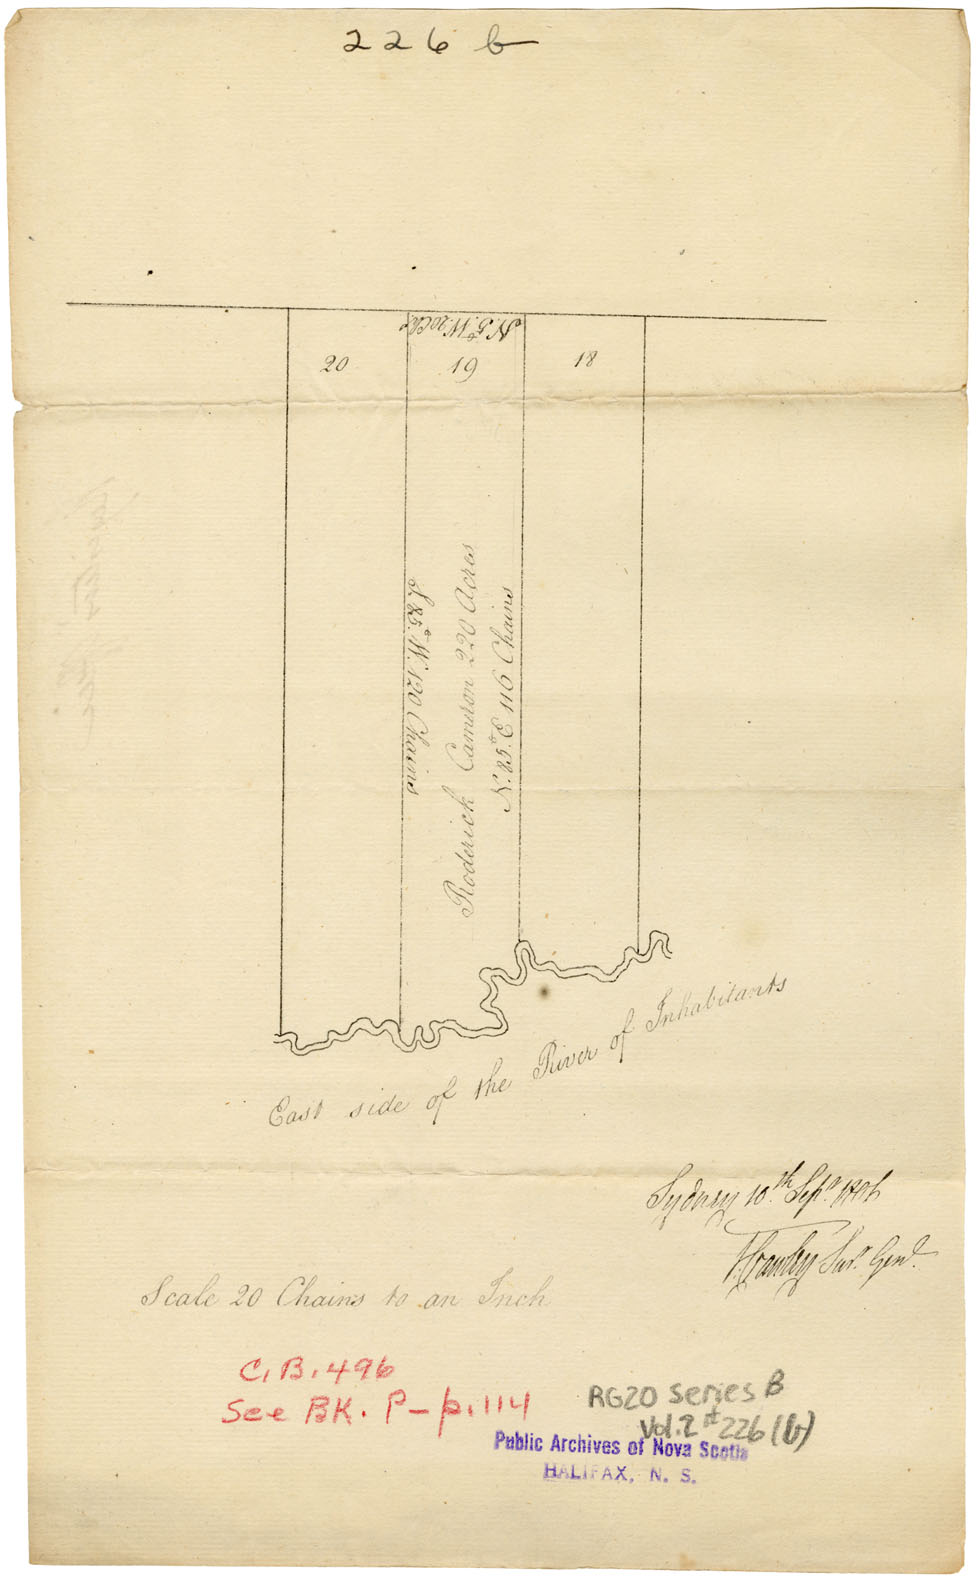 226 b
N. 5° W. 20 Chs
20
19
18
S. 85° W. 120 Chains
Roderick Cameron 220 Acres
N. 85° E 116 Chains
East side of the River of Inhabitants
Sydney 10th Sepr. 1806
Crawley Surr. Genl.
Scale 20 Chains to an Inch
C.B. 496
See BK. P - p. 114
RG20 Series B
Vol. 2 # 226 (b)
Public Archives of Nova Scotia
HALIFAX, N. S.